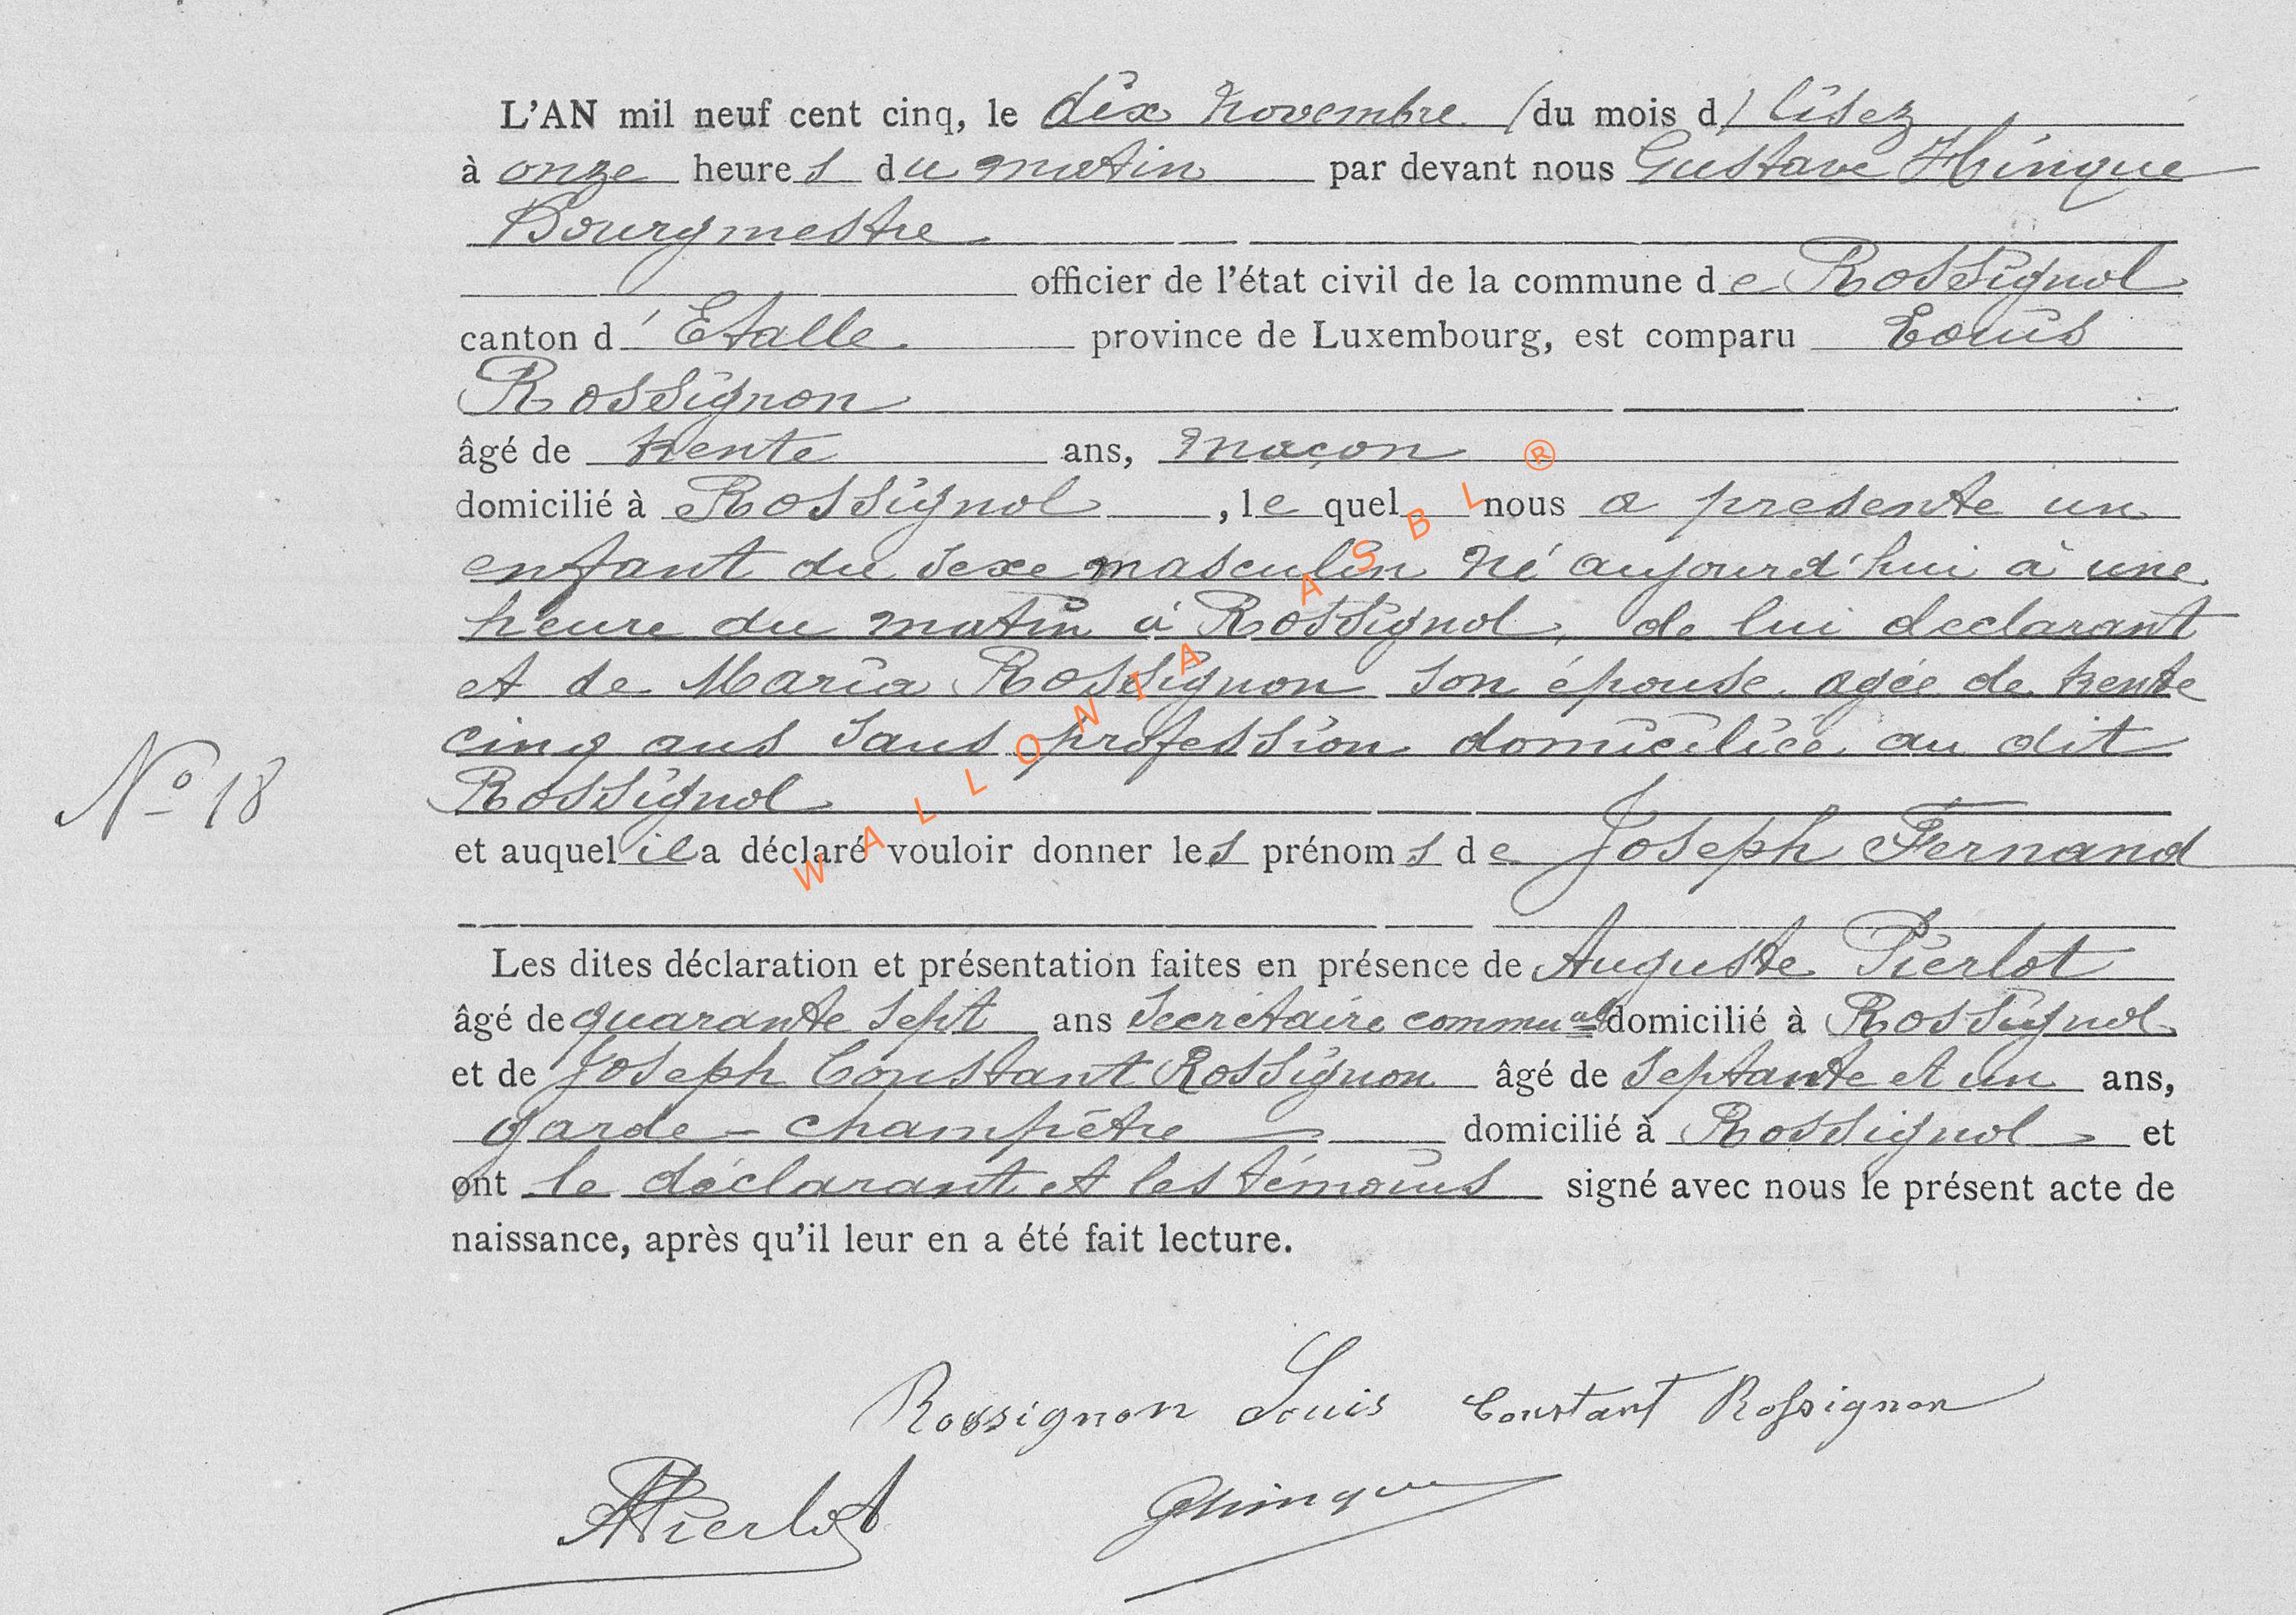 L'AN mil neuf cent cinq, le dix Novembre (du mois d) lisez
à onze heures du matin par devant nous Gustave Hinque
Bourgmestre
officier de l'état civil de la commune de Rossignol
canton d'Etalle province de Luxembourg, est comparu Louis
Rossignon
âgé de trente ans, maçon
domicilié à Rossignol, lequel nous a présenté un
enfant du sexe masculin né aujourd'hui à une
heure du matin à Rossignol, de lui declarant
et de Maria Rossignon son épouse agée de trente
cinq ans sans profession domiciliée au dit
Rossignol
N° 18
et auquel il a déclaré vouloir donner les prénoms de Joseph Fernand
Les dites déclaration et présentation faites en présence de Auguste Pierlot
âgé de quarante sept ans Secrétaire communal domicilié à Rossignol
et de Joseph Constant Rossignon âgé de septante et un ans,
garde-champêtre domicilié à Rossignol et
ont le déclarant et les témoins signé avec nous le présent acte de
naissance, après qu'il leur en a été fait lecture.
Rossignon Louis Constant Rossignon
APierlot GHinque
WALLONIA ASBL ®